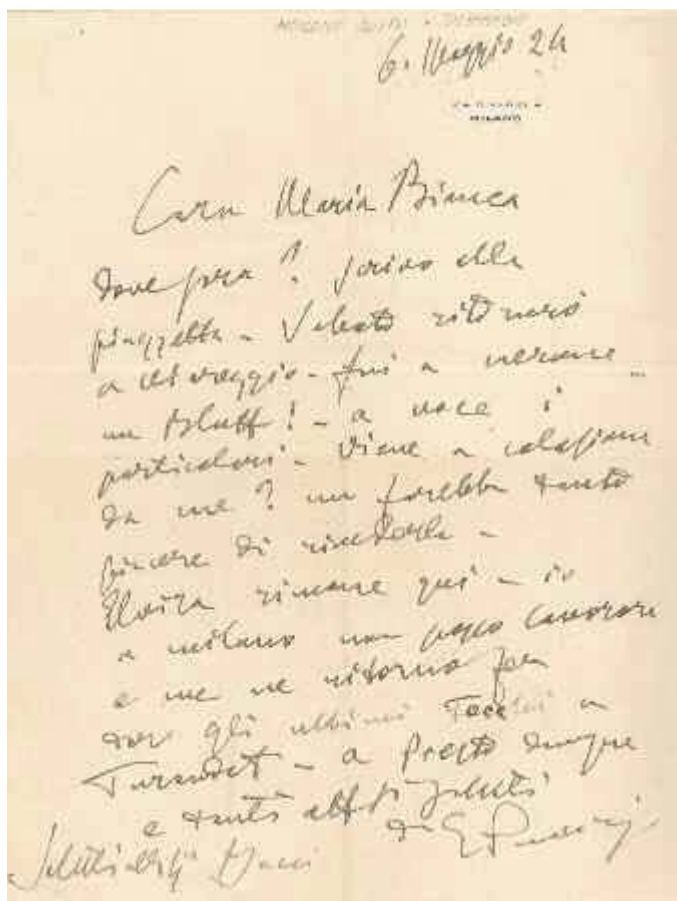 6. Maggio 24
MILANO
Cara Maria Bianca
dove sarà? scrivo alla
piazzetta - Sabato ritornerò
a viareggio - fui a
un bluff! - a voce i
particolari - viene a colazione
da me? mi farebbe tanto
piacere di rivederla -
Elvira rimane qui - io
a milano non posso lavorare
e me ne ritorno per
dare gli ultimi tocchi a
Turandot - a presto dunque
e tanti aff saluti
da G Puccini
Saluti